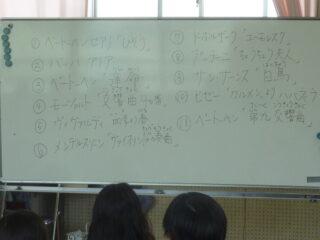 ① ベートーベン ピアノ「ひそう」
② バッハ アリア
③ ベートーベン「運命」
④ モーツァルト「交響曲40番」
⑤ ヴィヴァルディ「四季より春」
⑥ メンデルスゾーン「ヴァイオリン協奏曲」
⑦ ドボルザーク「ユーモレスク」
⑧ プッチーニ「ちょうちょう夫人」
⑨ サン・サーンス「白鳥」
⑩ ビゼー「カルメンよりハバネラ」
⑪ ベートーベン「第九交響曲」